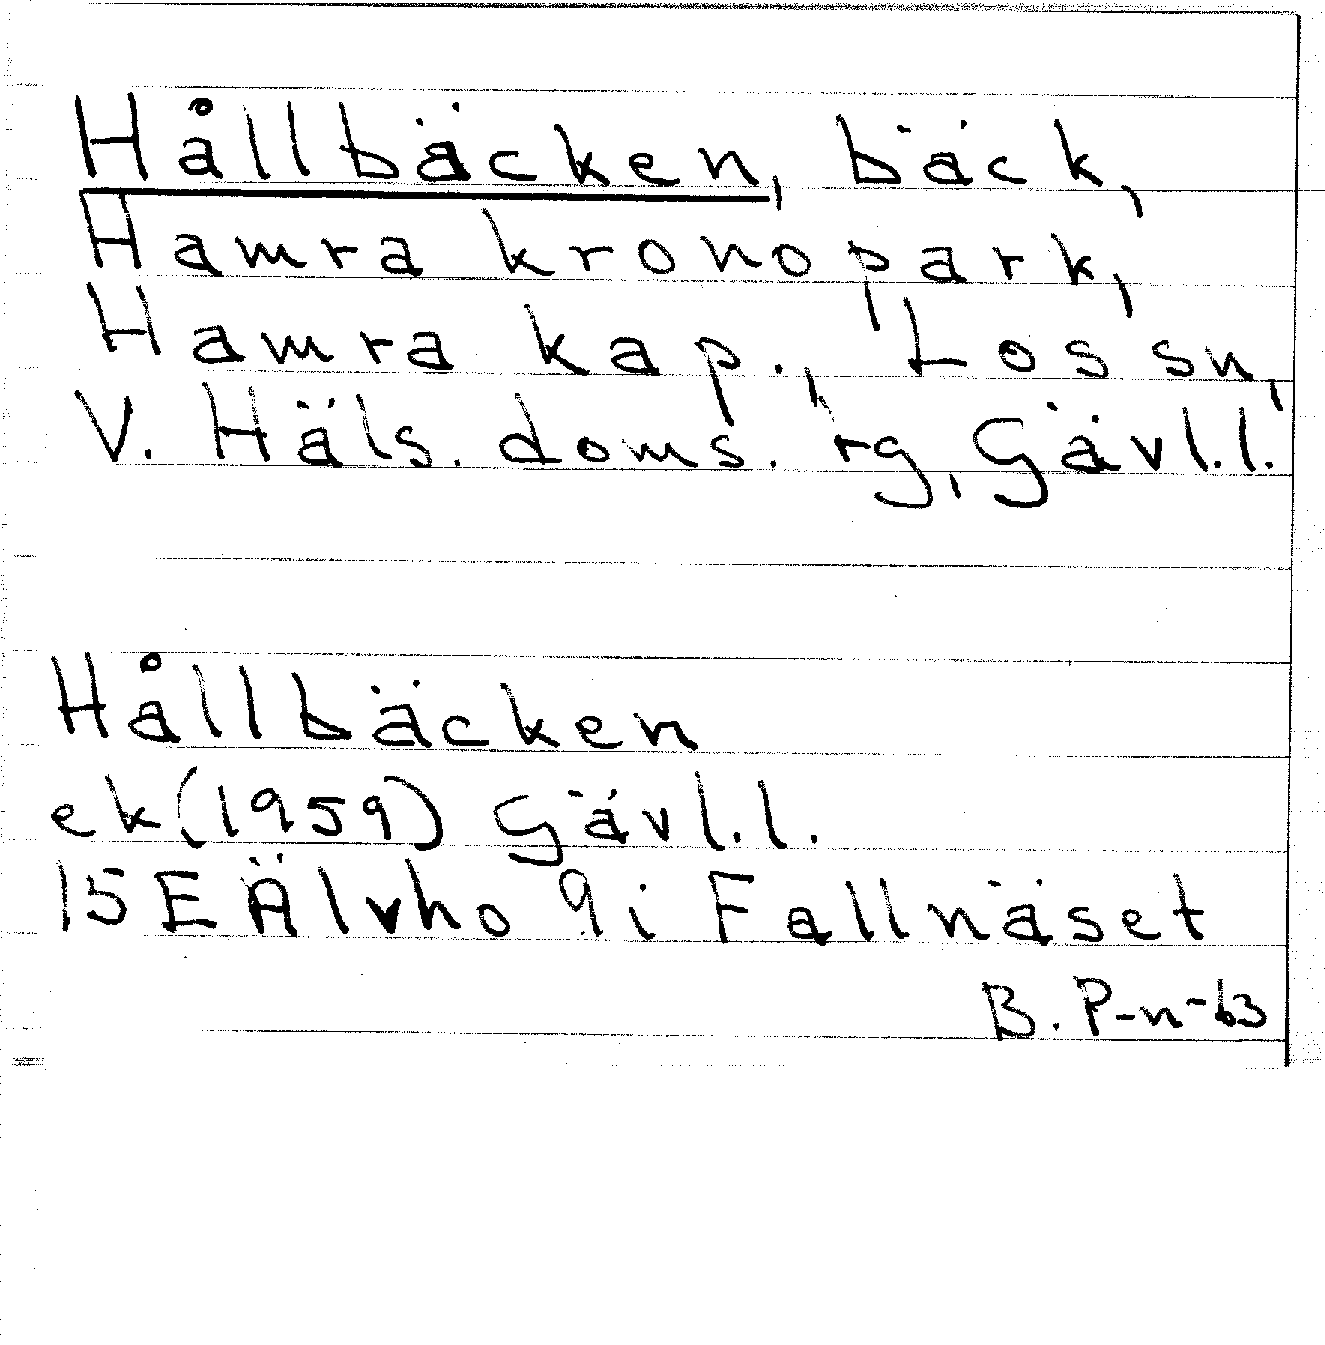 Hållbäcken, bäck,
Hamra kronopark,
Hamra kap., Los sn,
V. Häls. doms. rg, Gävl.l.
Hållbäcken
ek (1959) Gävl.l.
15E Älvho 9i Fallnäset
B. P-n-63